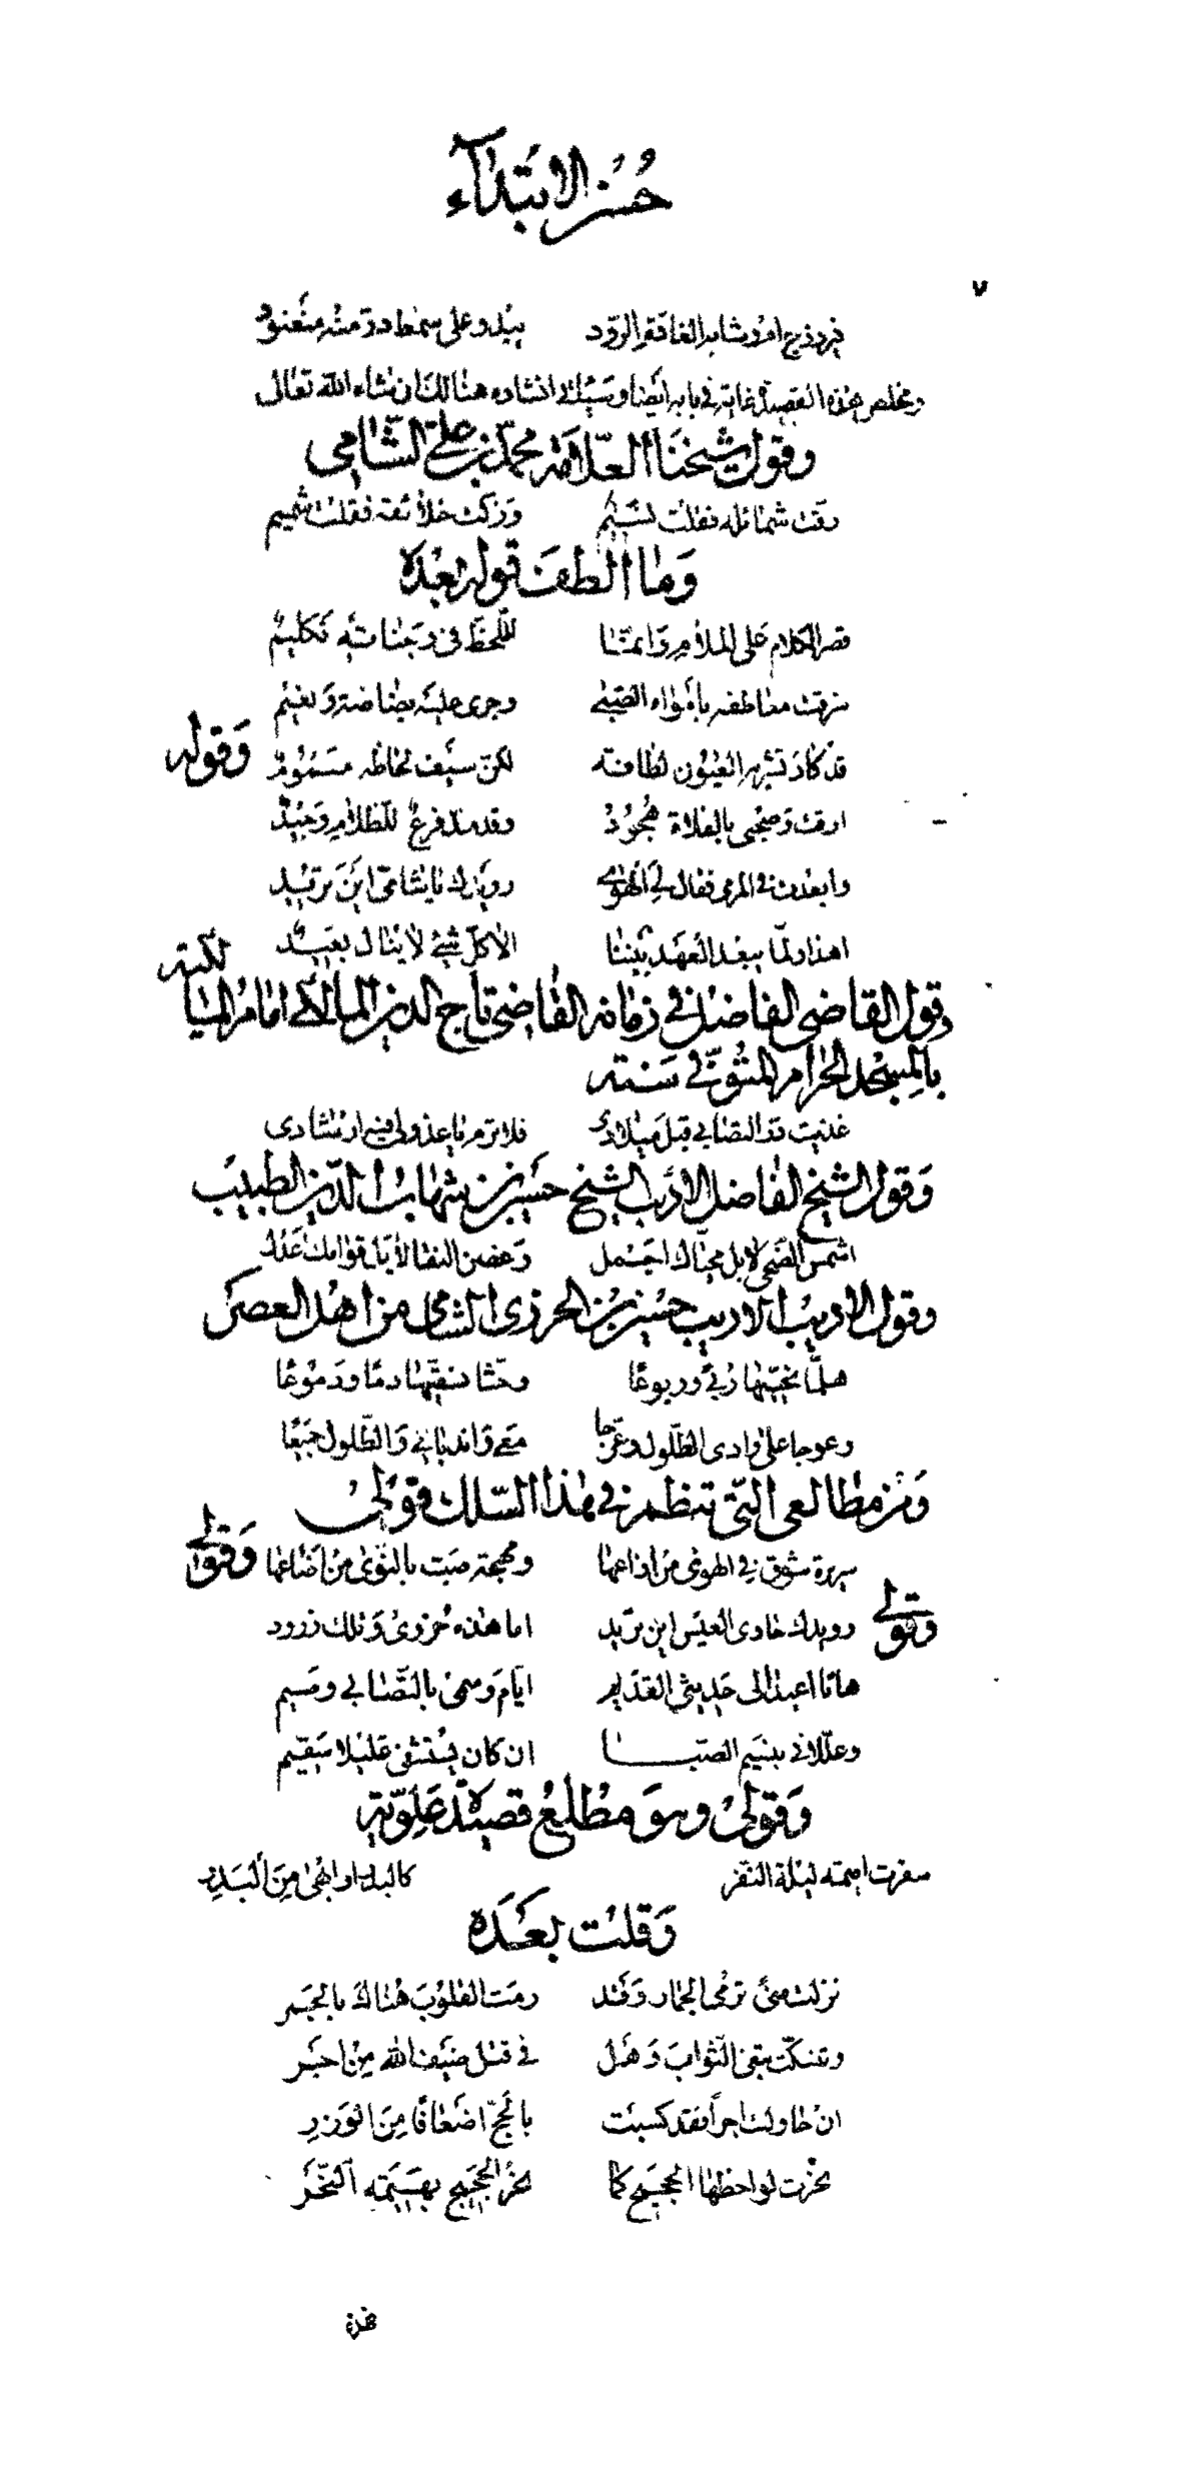 حسن الابتداء
٧
يبدو على سمط در منه منضود
ومخلص هذه القصيدة غاية في بابه أيضا وسيأتي انشاده هنالك ان شاء الله تعالى
وقول شيخنا العلامة محمد بن علي الشامي
رقت شمائله فقلت نسيم وزكت خلائقه فقلت شميم
وما ألطف قوله بعده
قصر الكلام على الملام وانما للحظ في وجناته تكليم
شرقت معاطفه بأمواه الصبى وجرى عليه بضاضة ونعيم
قد كاد تشربه العيون لطافة لكن سيف لحاظه مسموم وقوله
ارقت وصحبي بالفلاة هجود وقد مد فرع للظلام وجيد
وابعدت في المرمى فقال لي الهوى رويدك يا شامي اين تريد
اهذا ولما يبعد العهد بيننا الا كل شيء لا ينال بعيد
وقول القاضي الفاضل في زمانه القاضي تاج الدين المالكي امام المالكية
بالمسجد الحرام المتوفى في سنته
غذيت در التصابي قبل ميلادي فلا ترم يا عذولي فيه ارشادي
وقول الشيخ الفاضل الاديب الشيخ حسين بن شهاب الدين الطبيب
اشمس الضحى لا بل محياك اجمل وغصن النقا لا بل قوامك اعدل
وقول الاديب الاريب حسين بن الجزري الشامي من اهل العصر
هلما نحييها ربى وربوعا وحثا نسقيها دما ودموعا
وعوجا على وادي الطلول وعرجا معي واندباني والطلول جميعا
ومن مطالعي التي تنظم في هذا السلك قولي
سريرة شوق في الهوى من اذاعها ومهجة صب بالنوى من اضاعها وقولي
رويدك حادي العيس اين تريد اما هذه حزوى وتلك زرود وقولي
هاتا اعيدا لي حديثي القديم ايام وسمى بالتصابي وسيم
وعللاني بنسيم الصبا ان كان يستشفى عليلا سقيم
وقولي وهو مطلع قصيدة علوية
سفرت اميمة ليلة النفر كالبدر او ابهى من البدر
وقلت بعده
نزلت منى ترمي الجمار وقد رمت القلوب هناك بالجمر
وتنسكت تبغي الثواب وهل في قتل ضيف الله من اجر
ان حاولت اجرا فقد كسبت بالحج اضعافا من الوزر
نحرت لواحظها الحجيج كما نحر الحجيج بهيمة النحر